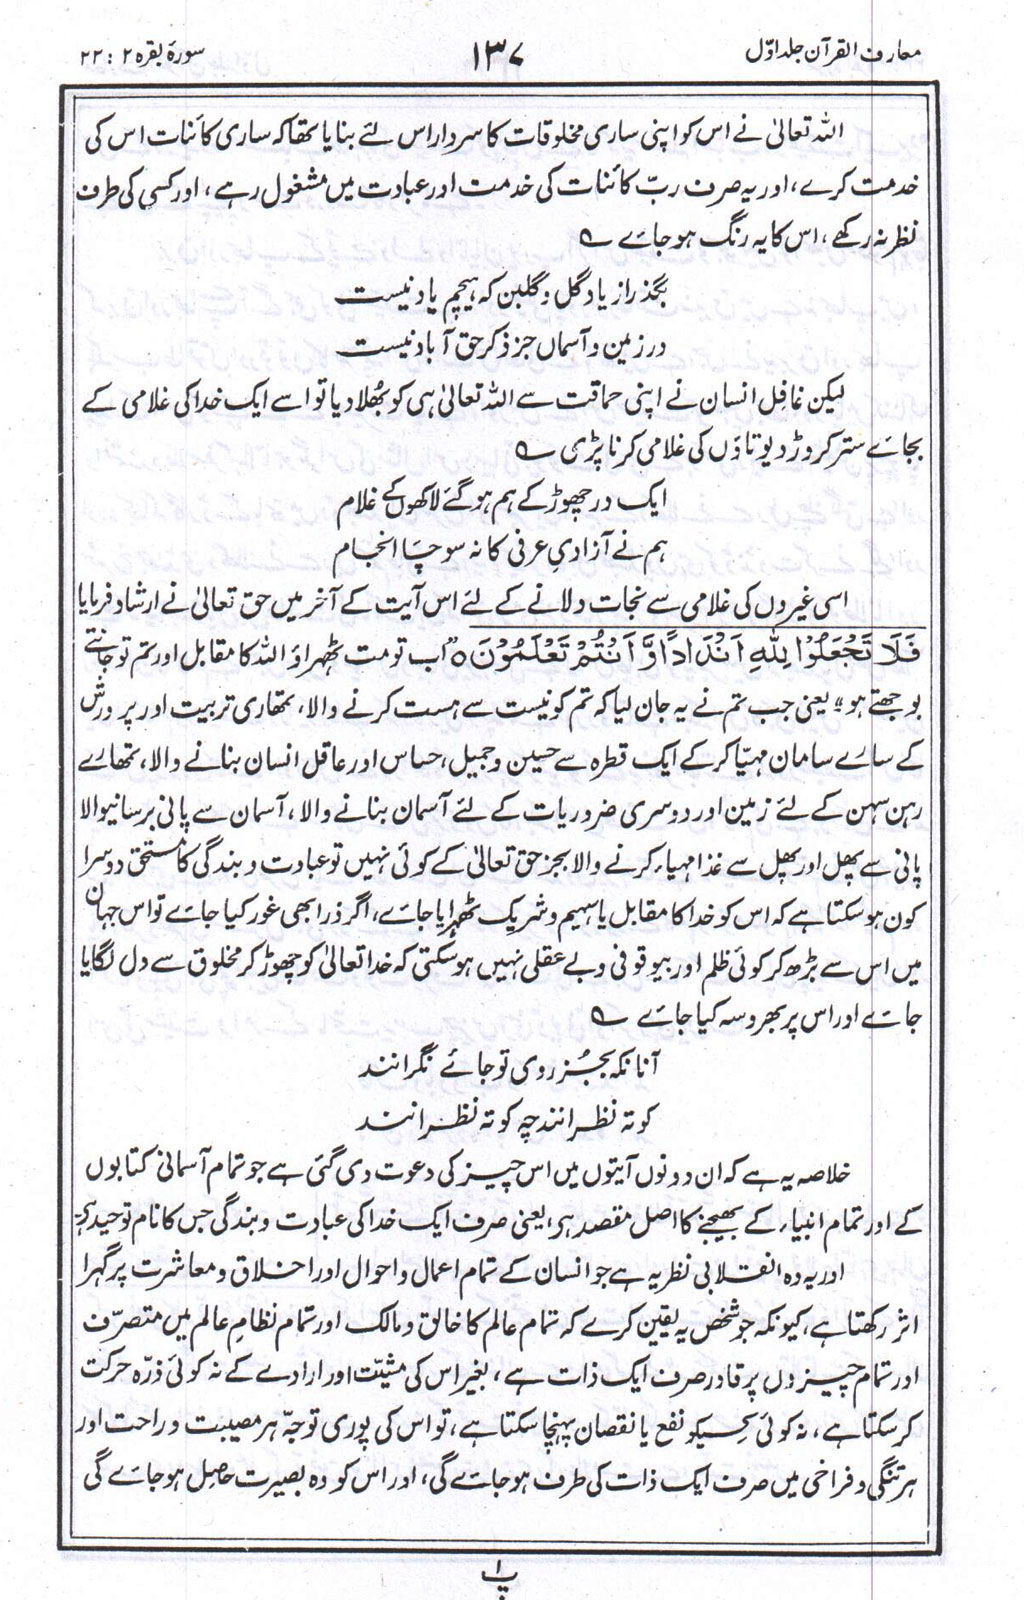 معارف القرآن جلد اوّل
۱۳۷
سورۂ بقرہ ۲ : ۲۲
اللہ تعالیٰ نے اس کو اپنی ساری مخلوقات کا سردار اس لئے بنایا تھا کہ ساری کائنات اس کی
خدمت کرے، اور یہ صرف ربّ کائنات کی خدمت اور عبادت میں مشغول رہے، اور کسی کی طرف
نظر نہ رکھے، اس کا یہ رنگ ہو جائے ؎
بگذر از یاد گل و گلبن کہ ہیچم یاد نیست
در زمین و آسماں جز ذکر حق آباد نیست
لیکن غافل انسان نے اپنی حماقت سے اللہ تعالیٰ ہی کو بھُلا دیا تو اسے ایک خدا کی غلامی کے
بجائے ستر کروڑ دیوتاؤں کی غلامی کرنا پڑی ؎
ایک در چھوڑ کے ہم ہو گئے لاکھوں کے غلام
ہم نے آزادیِ عرفی کا نہ سوچا انجام
اسی غیروں کی غلامی سے نجات دلانے کے لئے اس آیت کے آخر میں حق تعالیٰ نے ارشاد فرمایا
فَلَا تَجْعَلُوْا لِلّٰهِ اَنْدَادًا وَّ اَنْتُمْ تَعْلَمُوْنَ ٥ "اب تو مت ٹھہراؤ اللہ کا مقابل اور تم تو جانتے
بوجھتے ہو" یعنی جب تم نے یہ جان لیا کہ تم کو نیست سے ہست کرنے والا، تمھاری تربیت اور پرورش
کے سارے سامان مہیّا کر کے ایک قطرہ سے حسین و جمیل، حساس اور عاقل انسان بنانے والا، تمھارے
رہن سہن کے لئے زمین اور دوسری ضروریات کے لئے آسمان بنانے والا، آسمان سے پانی برسانیوالا
پانی سے پھل اور پھل سے غذا مہیاء کرنے والا بجز حق تعالیٰ کے کوئی نہیں تو عبادت و بندگی کا مستحق دوسرا
کون ہو سکتا ہے کہ اس کو خدا کا مقابل یا سہیم و شریک ٹھہرایا جائے، اگر ذرا بھی غور کیا جائے تو اس جہان
میں اس سے بڑھ کر کوئی ظلم اور بیوقوفی و بے عقلی نہیں ہو سکتی کہ خدا تعالیٰ کو چھوڑ کر مخلوق سے دل لگایا
جائے اور اس پر بھروسہ کیا جائے ؎
آنانکہ بجُز روی تو جائے نگرانند
کوتہ نظرانند چہ کوتہ نظرانند
خلاصہ یہ ہے کہ ان دونوں آیتوں میں اس چیز کی دعوت دی گئی ہے جو تمام آسمانی کتابوں
کے اور تمام انبیاء کے بھیجنے کا اصل مقصد ہی، یعنی صرف ایک خدا کی عبادت و بندگی جس کا نام توحید ہی۔
اور یہ وہ انقلابی نظریہ ہے جو انسان کے تمام اعمال و احوال اور اخلاق و معاشرت پر گہرا
اثر رکھتا ہے، کیونکہ جو شخص یہ یقین کرے کہ تمام عالم کا خالق و مالک اور تمام نظامِ عالم میں متصرّف
اور تمام چیزوں پر قادر صرف ایک ذات ہے، بغیر اس کی مشیّت اور ارادے کے نہ کوئی ذرّہ حرکت
کر سکتا ہے، نہ کوئی کسیکو نفع یا نقصان پہنچا سکتا ہے، تو اس کی پوری توجّہ ہر مصیبت و راحت اور
ہر تنگی و فراخی میں صرف ایک ذات کی طرف ہو جائے گی، اور اس کو وہ بصیرت حاصل ہو جائے گی
پ ۱